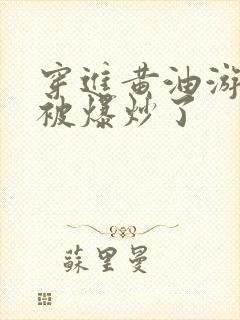 穿進黄油游
被爆炒了
蘇里曼